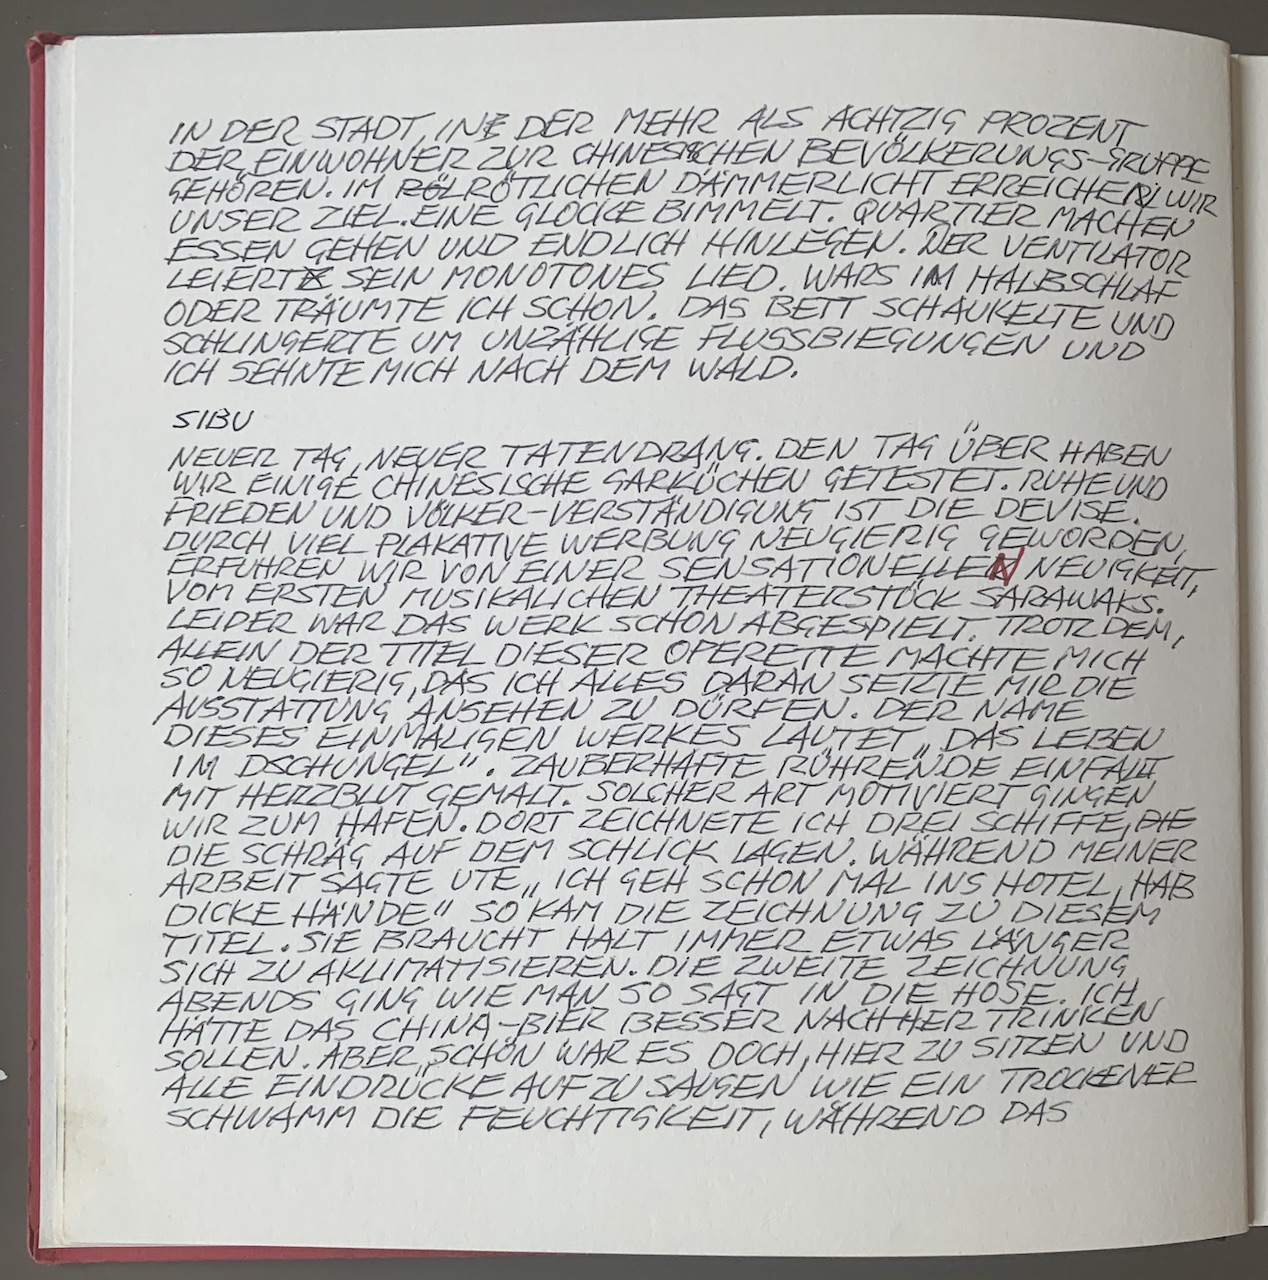 IN DER STADT, IN DER MEHR ALS ACHTZIG PROZENT
DER EINWOHNER ZUR CHINESISCHEN BEVÖLKERUNGS-GRUPPE
GEHÖREN. IM RÖL RÖTLICHEN DÄMMERLICHT ERREICHEN WIR
UNSER ZIEL. EINE GLOCKE BIMMELT. QUARTIER MACHEN
ESSEN GEHEN UND ENDLICH HINLEGEN. DER VENTILATOR
LEIERT SEIN MONOTONES LIED. WARS IM HALBSCHLAF
ODER TRÄUMTE ICH SCHON. DAS BETT SCHAUKELTE UND
SCHLINGERTE UM UNZÄHLIGE FLUSSBIEGUNGEN UND
ICH SEHNTE MICH NACH DEM WALD.
SIBU
NEUER TAG, NEUER TATENDRANG. DEN TAG ÜBER HABEN
WIR EINIGE CHINESISCHE GARKÜCHEN GETESTET. RUHE UND
FRIEDEN UND VÖLKER-VERSTÄNDIGUNG IST DIE DEVISE.
DURCH VIEL PLAKATIVE WERBUNG NEUGIERIG GEWORDEN,
ERFUHREN WIR VON EINER SENSATIONELLEN NEUIGKEIT,
VOM ERSTEN MUSIKALICHEN THEATERSTÜCK SARAWAKS.
LEIDER WAR DAS WERK SCHON ABGESPIELT. TROTZDEM,
ALLEIN DER TITEL DIESER OPERETTE MACHTE MICH
SO NEUGIERIG, DAS ICH ALLES DARAN SETZTE MIR DIE
AUSSTATTUNG ANSEHEN ZU DÜRFEN. DER NAME
DIESES EINMALIGEN WERKES LAUTET „DAS LEBEN
IM DSCHUNGEL". ZAUBERHAFTE RÜHRENDE EINFALT
MIT HERZBLUT GEMALT. SOLCHER ART MOTIVIERT GINGEN
WIR ZUM HAFEN. DORT ZEICHNETE ICH DREI SCHIFFE, DIE
DIE SCHRÄG AUF DEM SCHLICK LAGEN. WÄHREND MEINER
ARBEIT SAGTE UTE „ICH GEH SCHON MAL INS HOTEL, HAB
DICKE HÄNDE" SO KAM DIE ZEICHNUNG ZU DIESEM
TITEL. SIE BRAUCHT HALT IMMER ETWAS LÄNGER
SICH ZU AKLIMATISIEREN. DIE ZWEITE ZEICHNUNG
ABENDS GING WIE MAN SO SAGT IN DIE HOSE. ICH
HÄTTE DAS CHINA-BIER BESSER NACHHER TRINKEN
SOLLEN. ABER SCHÖN WAR ES DOCH, HIER ZU SITZEN UND
ALLE EINDRÜCKE AUFZUSAUGEN WIE EIN TROCKENER
SCHWAMM DIE FEUCHTIGKEIT, WÄHREND DAS